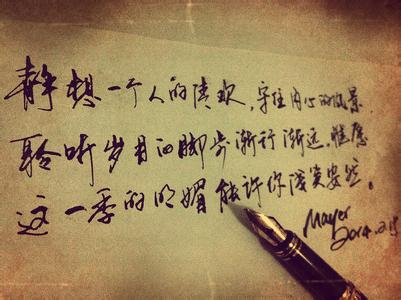 静想一个人的清欢，守住内心的风景
聆听岁月的脚步渐行渐远，惟愿
这一季的明媚能许你浅笑安然。
Mayer